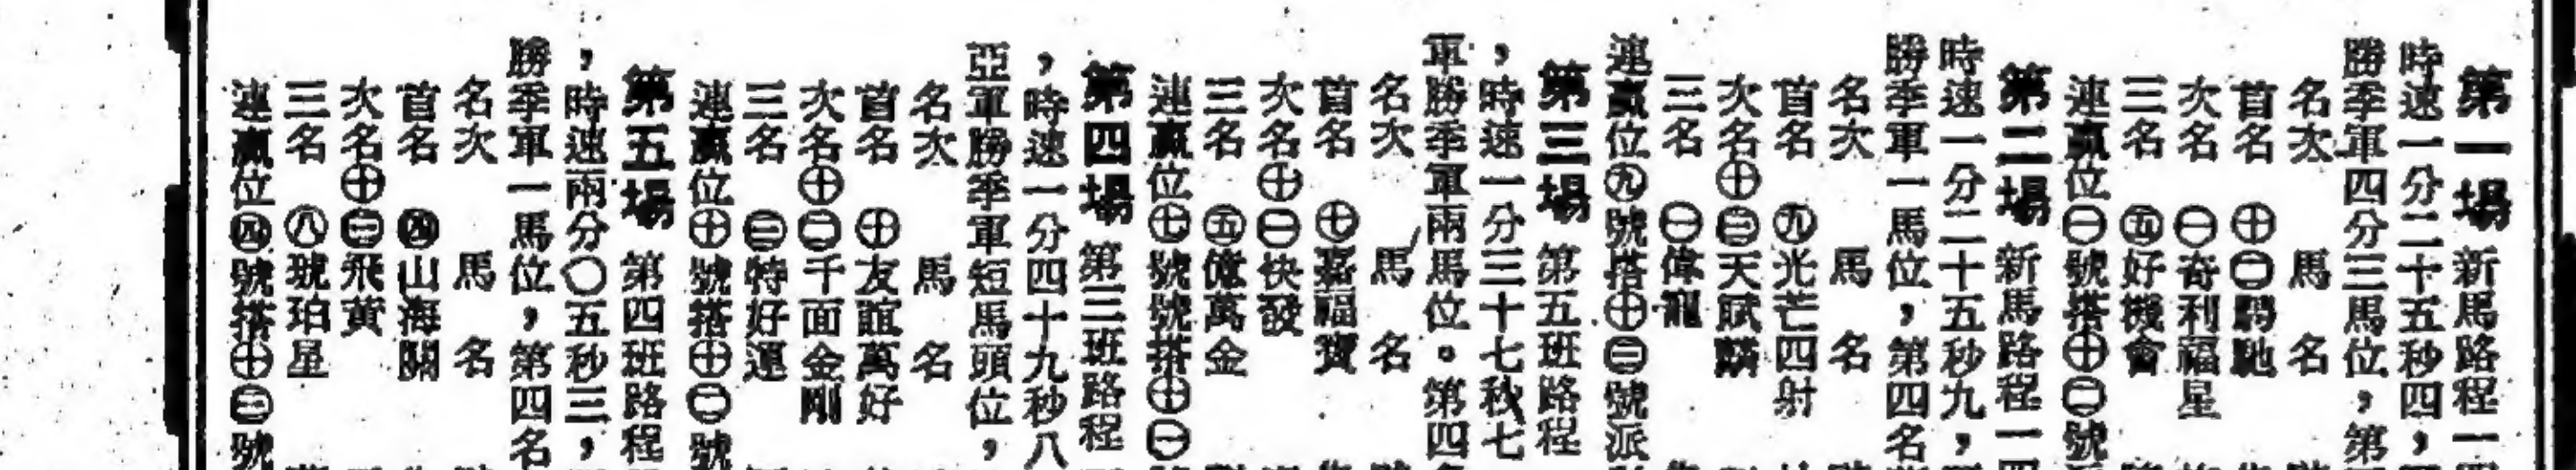 第一場 新馬路程一
時速一分二十五秒四，
勝季軍四分三馬位，第
名次 馬 名
首名 ㊉㊁
次名 ㊀奇利福星
三名 ㊄好機會
連贏位㊀號搭㊉㊁號
第二場 新馬路程一
時速一分二十五秒九，
勝季軍一馬位，第四名
名次 馬 名
首名 ㊈光芒四射
次名㊉㊂天賦
三名 ㊀偉龍
連贏位㊈號搭㊉㊂號派
第三場 第五班路程
，時速一分三十七秒七
軍勝季軍兩馬位。第四
名次 馬 名
首名 ㊆嘉福寶
次名㊉㊀快發
三名 ㊄億萬金
連贏位㊆號號搭㊉㊀
第四場 第三班路程
，時速一分四十九秒八
亞軍勝季軍短馬頭位，
名次 馬 名
首名 ㊉友誼萬好
次名㊉㊁千面金剛
三名 ㊂特好運
連贏位㊉號搭㊉㊁號
第五場 第四班路程
，時速兩分〇五秒三，
勝季軍一馬位，第四名
名次 馬 名
首名 ㊃山海關
次名㊉㊂飛黃
三名 ㊇琥珀星
連贏位㊃號搭㊉㊂號